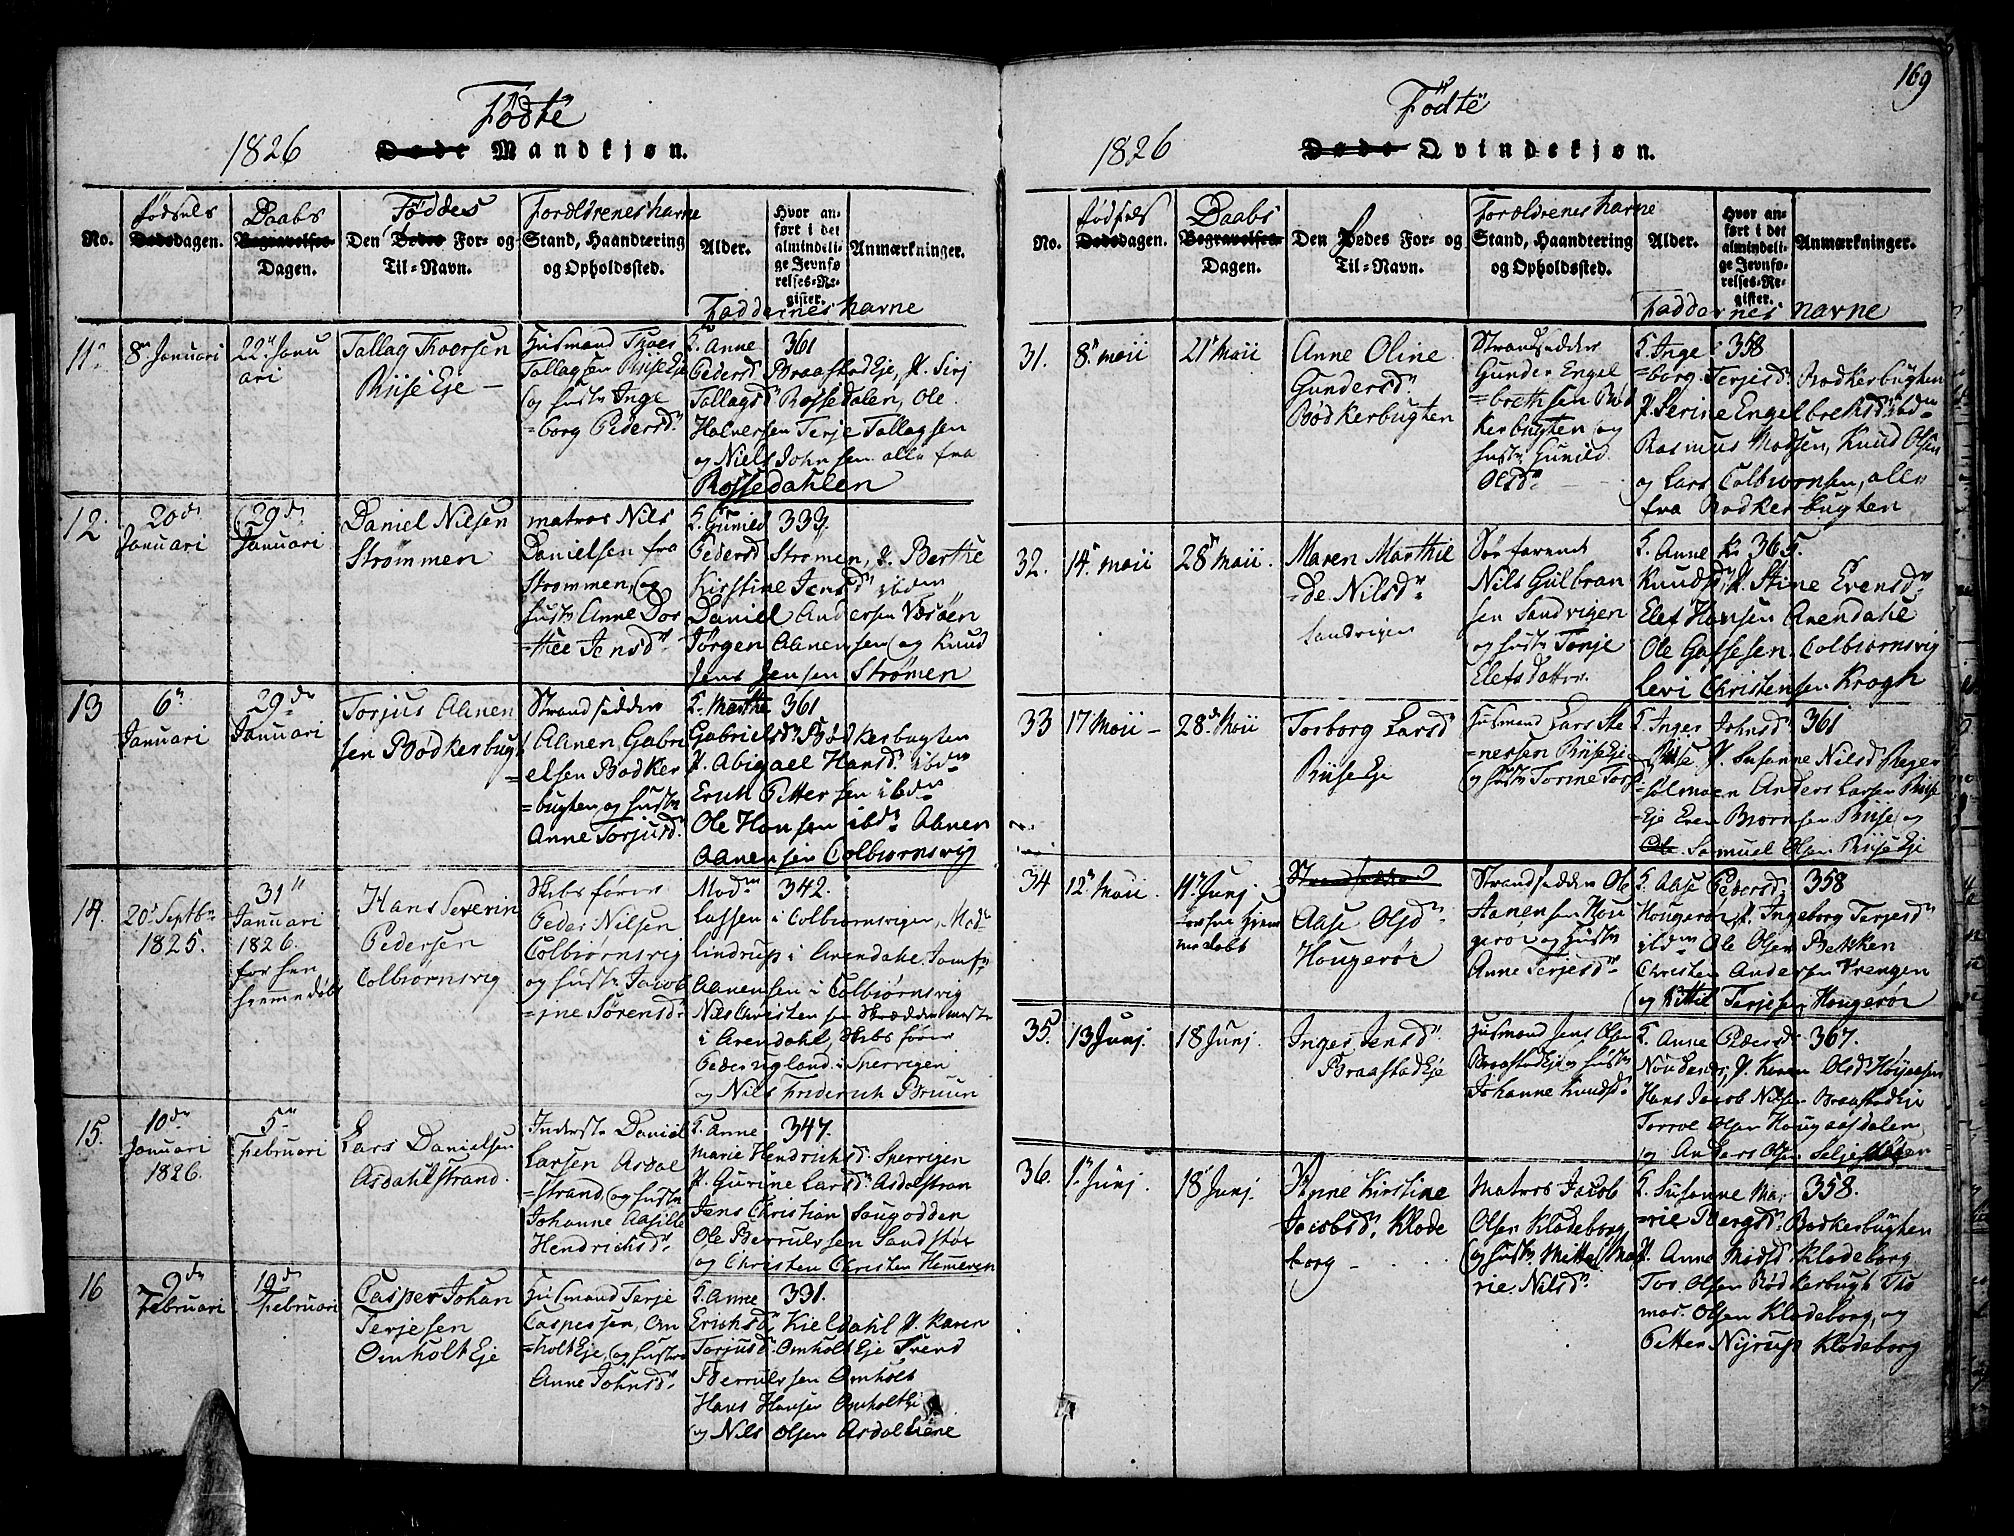 169
Födte
1826 Døde Mandkjøn.
No.
fødsels
Dødsdagen.
Daabs
Begravelses-
Dagen.
Föddes
Den Dødes For- og
Til-Navn.
Forældrenes navne
Stand, Haandtering
og Opholdssted.
Alder.
Hvor an-
ført i det
almindeli-
ge Jevnfø-
relses-Re-
gister.
Anmærkninger.
Faddernes navne
11.
8 Januari
22 Janu
ari
Tallag Thoersen
Riise Eje
Husmand Thoes
Tallagsen Riise Eje
og hustr Inge
=borg Pedersd.
Anne 361
Pedersd Braastad Eje, J. Sirj
Tallagsd Rossedalen, Ole
Halversen Terje Tallagsen
og Niels Johnsen alle fra
Rossedahlen
12.
20de
Januari
29de
Januari
Daniel Nilsen
Strømmen
matros Nils
Danielsen fra
Strommen, og
hustr Anne Dor
=thee Jensd.
Gunild 333.
Pedersd Strømen, J. Berthe
Kirstine Jensd ibden
Daniel Andersen Væsøen
Jørgen Aanensen og Knud
Jens Jensen Strømen
13
6
Januari
29de
Januari
Torjus Aanen
sen Bodkerbugt
Strandsidder
Aanen Gabri
elsen Bodker
=bugten og hustr
Anne Torjusd.
Marthe 361
Gabrielsd Bødkerbugten
J. Abigael Hansd. ibden
Erich Pittersen ibdn
Ole Hansen ibd Aanen
Aanensen Colbiornsvig
14.
20 Septbr
1825.
31
Januari
1826.
for hen
hjemmedøbt
Hans Severin
Pedersen
Colbiornsvig
Skibsfører
Peder Nilsen
Colbiørnsvig
og hustr Jacob
=ine Sørensd.
Mad 342.
Lassen i Colbiornsvigen, Mad
Lindrup i Arendahl, Jomf
Aanensen i Colbiørnsvig
Nils Christensen Skrædder mester
i Arendahl, Skibsfører
Peder Ugland i Sperrigen
og Nils Frederich Bruun
15.
10de
Januari
1826.
5
Februari
Lars Danielsen
Asdahlstrand.
Inderst Daniel
Larsen Asdal
=strand og hustr
Johanne Aasille
Hendrichsd.
Anne 347.
Marie Hendrichsd. Sperrigen
J. Gurine Larsd. Asdalstran
Jens Christian Saugodden
Ole Berrulvsen Sandstøe
og Christen Christen Hemeren
16
9de
Februari
19de
Februari
Casper Johan
Terjesen
Omholt Eje
Husmand Terje
Caspersen, Om
=holt Eje, og hustr
Anne Johnsd.
Anne 331.
Erichsd. Kieldahl J. Karen
Torjusd. Omholt Eje Trend
Berrulvsen Omholt
Hans Hansen Omholt
og Nils Olsen Asdal
Födte
1826 Døde Qvindekjøn.
No.
fødsels
Dødsdagen.
Daabs
Begravelses-
Dagen.
Den Dødes For- og
Til-Navn.
Forældrenes navne
Stand, Haandtering
og Opholdssted.
Alder.
Hvor an-
ført i det
almindeli-
ge Jevnfø-
relses-Re-
gister.
Anmærkninger.
Faddernes navne
31.
8 maii
21 Maii
Anne Oline
Gundersd
Bodkerbugten
Strandsidder
Gunder Engel
=brethsen Bød
kerbugten og
hustr Gunild
Olsd
Inge 358
=borg Terjesd. Bodkerbugten
J. Serine Engelbrethsd. ibden
Rasmus Madsen, Knud Olsen
og Lars Colbiornsen, alle
fra Bodkerbugten
32.
14 maii
28 Maii.
Maren Marthe
=de Nilsd
Sandvigen
Søefarende
Nils Gulbran
sen Sandvigen
og hustr Terje
Elefsdatter.
Anne Kr 365.
Knudsd, J. Stine Evensd
Elef Hansen Arendahl
Ole Gassesen Colbiornsvig
Levi Christensen Krogh
33
17 Maii
28de Maii
Torborg Larsd
Riise Eje
Husmand Lars Ste
=nersen Riise Eje
og hustr Torine Torsd
Inger Johnsd. 361
Riise J. Susanne Nilsd Reger
=solmoen Anders Larsen Riise
Eje Even Bjornsen Riise og
Ole Samuel Olsen Riise Eje
34
12 Maii
11 Junj
Strandsidder
Aase Olsd
Hougerøe
Strandsidder Ole
Aanensen Hou
gerøe og hustr
Anne Terjesd
Aase Pedersd. 358
Hougerøe J. Ingeborg Terjesd
ibden Ole Olsen Bakken
Christen Andersen Vrengen
og Kittil Terjesen Hougerøe
35.
13 Junj.
18 Junj.
Inger Jensd
Braastad Eje
Husmand Jens Olsen
Braastad Eje og hustr
Johanne Knudsd
Anne Pedersd. 367.
J. Karen Olsd
Hans Jacob Nilsen Braastad Eje
Torvor Olsen Hougaasdalen
og Anders Olsen
36.
1 Junj.
18 Junj.
Anne Kirstine
Jacobsd. Klode
borg
Matros Jacob
Olsen Klodeborg
og hustr Mette Ma
rie Nilsd
Susanne Ma 358.
=rie Bergsd. Bodkerbugten
J. Anne Madsd Klodeborg
Tor Olsen Bødkerbugt Tho
mas Olsen Klodeborg, og
Petter Nijrup Klodeborg